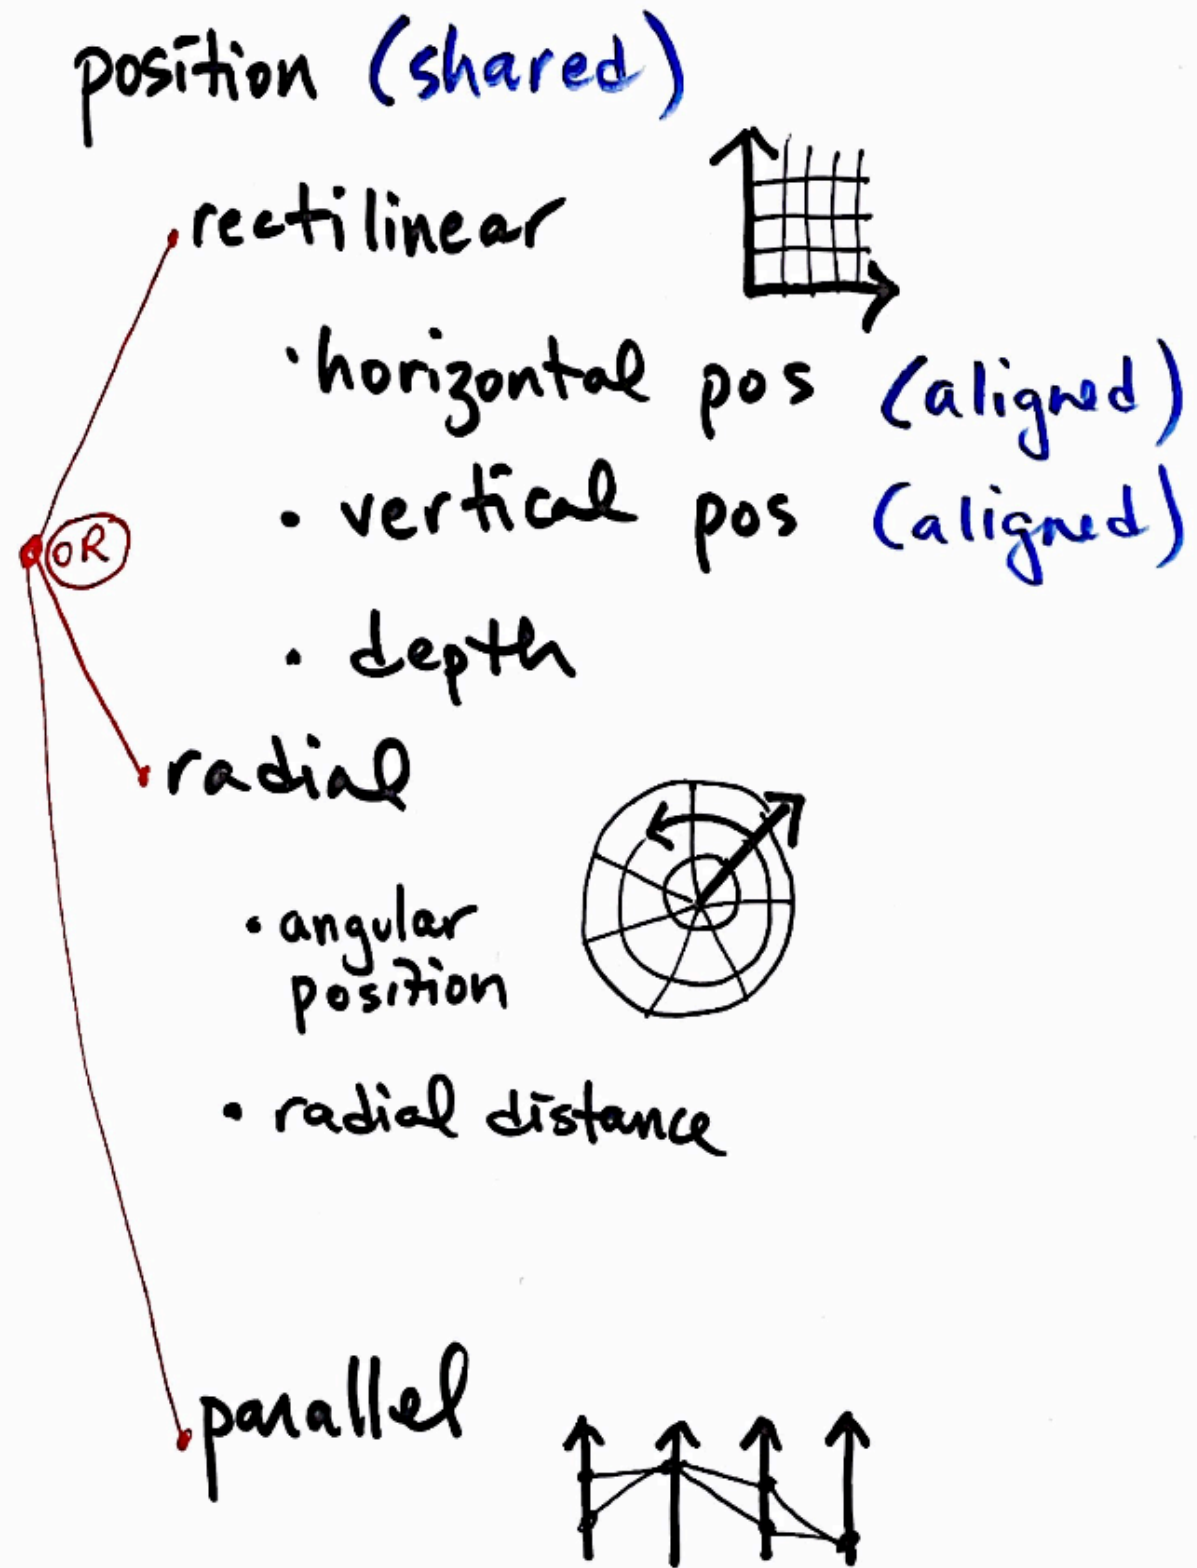 position (shared)
rectilinear
• horizontal pos (aligned)
• vertical pos (aligned)
OR
• depth
radial
• angular
position
• radial distance
parallel